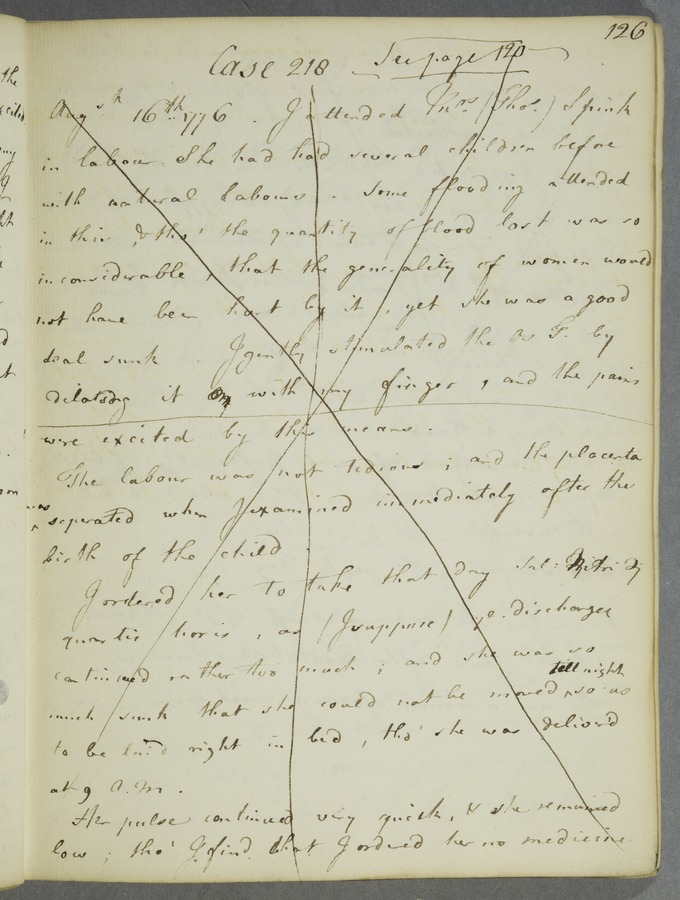 126
Case 218 — See page 120
Augst 16th. 1776. I attended Mrs (Thos.) Spink
in labour. She had had several children before
with natural labours. Some flooding attended
in this, & tho' the quantity of blood lost was so
inconsiderable, that the generality of women would
not have been hurt by it, yet she was a good
deal sunk. I gently stimulated the Os T. by
dilating it with my finger, and the pains
were excited by this means.
The labour was not tedious; and the placenta
was seperated when I examined immediately after the
birth of the child.
I ordered her to take that day Sal: Nitri
quartis horis, as (I suppose) ye discharges
continued rather too much; and she was so
much sunk that she could not be moved till night, so as
to be laid right in bed, tho' she was deliver'd
at 9 A.M.
Her pulse continued very quick, & she remained
low; tho' I find that I ordered her no medicine